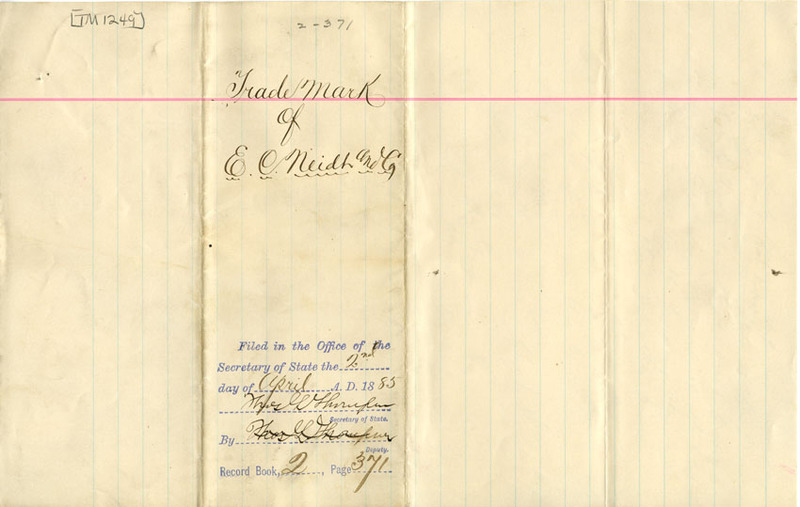 [TM1249]
2-371
Trade Mark
of
E. C. Neidt and Co
Filed in the Office of the
Secretary of State the 2nd
day of April A. D. 1885
Thos L Thompson
Secretary of State.
By Thos L Thompson
Deputy.
Record Book, 2, Page 371